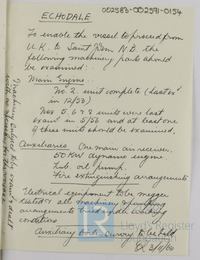 002583-002591-0154
ECHODALE
To enable the vessel to proceed from
U.K. to Saint John N.B. the
following machinery parts should
be examined:-
Main Engine.
No. 2 unit complete (last exd
in 12/53)
Nos 5, 6 & 8 units were last
exam in 5/56 and at least one
of these units should be examined.
Auxiliaries One main air receiver,
50 KW dynamo engine
Lub. oil pump
Fire extinguishing arrangements
Electrical equipment to be megger
tested & all machinery & pumping
arrangements tried under working
conditions
Auxiliary boiler survey to be held
Machinery Subject
Lloyd's Register